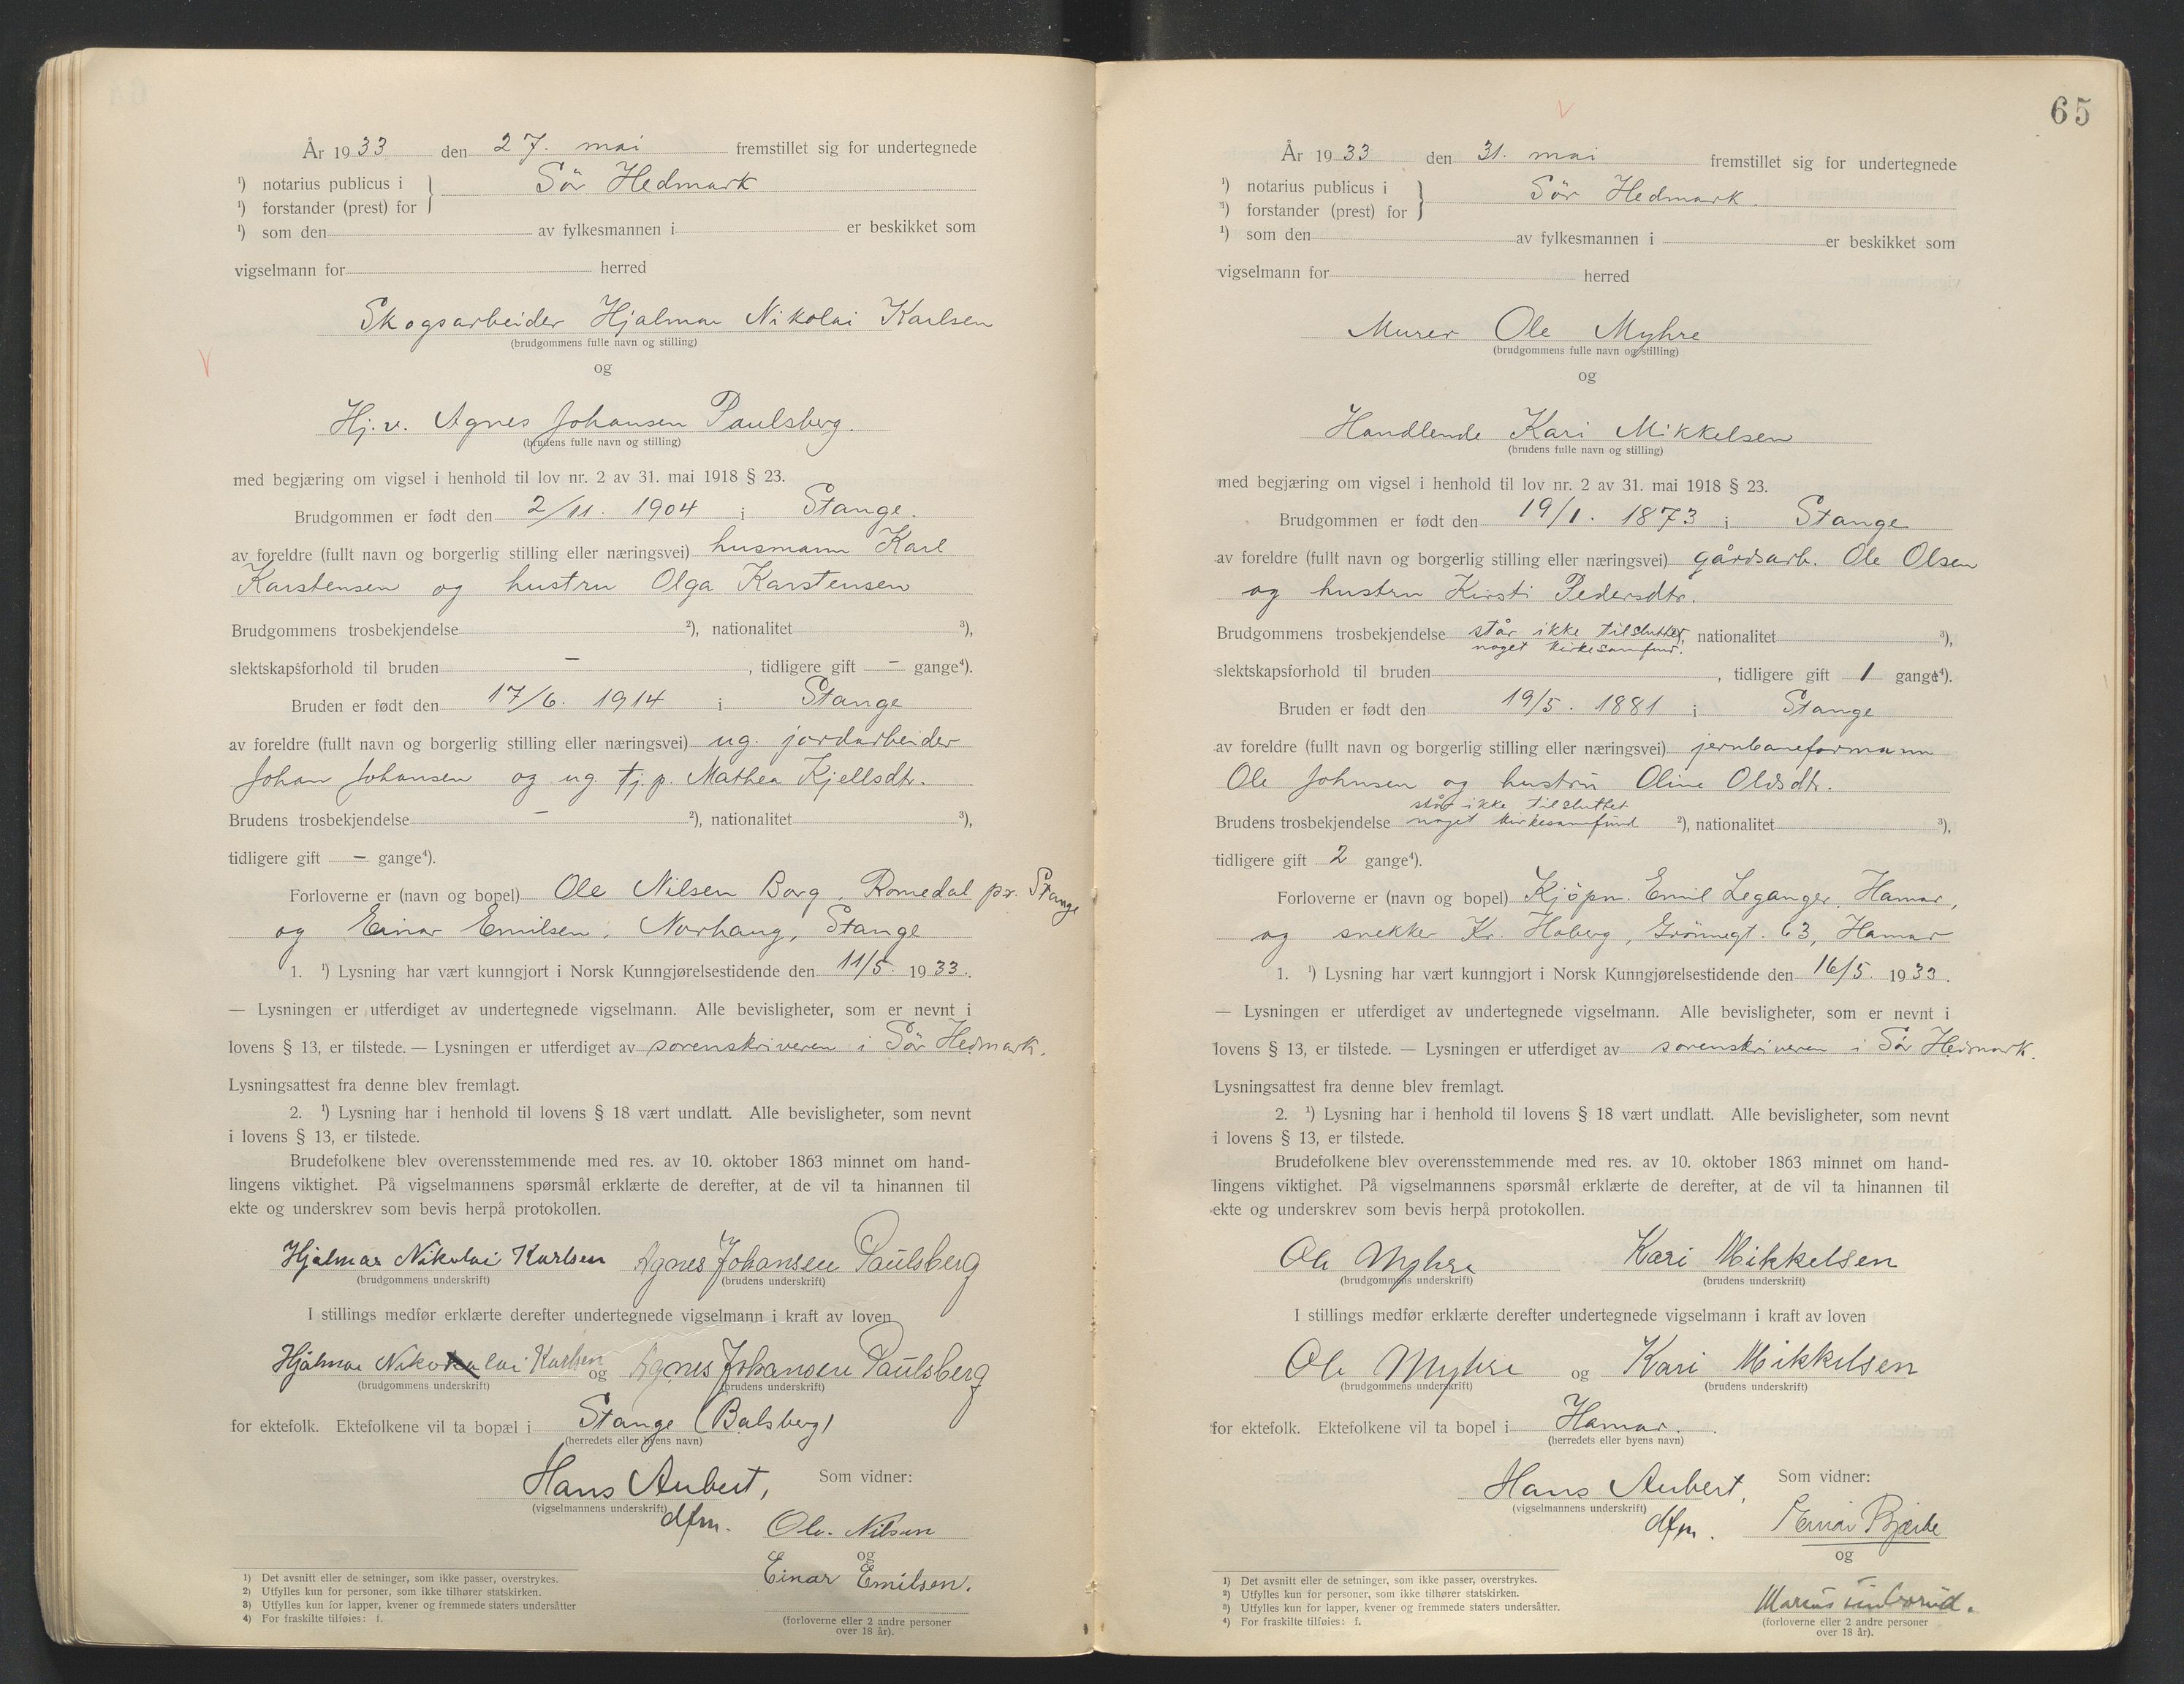 År 1933 den 27. mai fremstillet sig for undertegnede
¹) notarius publicus i } Sör Hedmark
¹) forstander (prest) for
¹) som den av fylkesmannen i er beskikket som
vigselmann for herred
Skogsarbeider Hjalmar Nikolai Karlsen
(brudgommens fulle navn og stilling)
og
Hj. v. Agnes Johansen Paulsberg.
(brudens fulle navn og stilling)
med begjæring om vigsel i henhold til lov nr. 2 av 31. mai 1918 § 23.
Brudgommen er født den 2/11. 1904 i Stange.
av foreldre (fullt navn og borgerlig stilling eller næringsvei) husmann Karl
Karstensen og hustru Olga Karstensen
Brudgommens trosbekjendelse ²), nationalitet ³),
slektskapsforhold til bruden - , tidligere gift - gange⁴).
Bruden er født den 17/6. 1914 i Stange
av foreldre (fullt navn og borgerlig stilling eller næringsvei) ug. jordarbeider
Johan Johansen og ug. tj. p. Mathea Kjellsdtr.
Brudens trosbekjendelse - ²), nationalitet ³),
tidligere gift - gange⁴).
Forloverne er (navn og bopel) Ole Nilsen Borg, Romedal pr. Stange
og Einar Emilsen, Norhaug, Stange
1. ¹) Lysning har vært kunngjort i Norsk Kunngjørelsestidende den 11/5. 1933.
— Lysningen er utferdiget av undertegnede vigselmann. Alle bevisligheter, som er nevnt i
lovens § 13, er tilstede. — Lysningen er utferdiget av sorenskriveren i Sör Hedmark.
Lysningsattest fra denne blev fremlagt.
2. ¹) Lysning har i henhold til lovens § 18 vært undlatt. Alle bevisligheter, som nevnt
i lovens § 13, er tilstede.
Brudefolkene blev overensstemmende med res. av 10. oktober 1863 minnet om hand-
lingens viktighet. På vigselmannens spørsmål erklærte de derefter, at de vil ta hinannen til
ekte og underskrev som bevis herpå protokollen.
Hjalmar Nikolai Karlsen Agnes Johansen Paulsberg
(brudgommens underskrift) (brudens underskrift)
I stillings medfør erklærte derefter undertegnede vigselmann i kraft av loven
Hjalmar Nikolai Karlsen og Agnes Johansen Paulsberg
(brudgommens underskrift) (brudens underskrift)
for ektefolk. Ektefolkene vil ta bopæl i Stange (Balsberg)
(herredets eller byens navn)
Hans Aubert, Som vidner:
(vigselmannens underskrift)
dfm. Ole Nilsen
og
Einar Emilsen.
(forloverne eller 2 andre personer
over 18 år).
1) Det avsnitt eller de setninger, som ikke passer, overstrykes.
2) Utfylles kun for personer, som ikke tilhører statskirken.
3) Utfylles kun for lapper, kvener og fremmede staters undersåtter
4) For fraskilte tilføies: f.
65
År 1933 den 31. mai fremstillet sig for undertegnede
¹) notarius publicus i } Sör Hedmark.
¹) forstander (prest) for
¹) som den av fylkesmannen i er beskikket som
vigselmann for herred
Murer Ole Myhre
(brudgommens fulle navn og stilling)
og
Handlende Kari Mikkelsen
(brudens fulle navn og stilling)
med begjæring om vigsel i henhold til lov nr. 2 av 31. mai 1918 § 23.
Brudgommen er født den 19/1. 1873 i Stange
av foreldre (fullt navn og borgerlig stilling eller næringsvei) gårdsarb. Ole Olsen
og hustru Kirsti Pedersdtr.
Brudgommens trosbekjendelse står ikke tilsluttet ²), nationalitet ³),
noget kirkesamfund.
slektskapsforhold til bruden , tidligere gift 1 gange⁴).
Bruden er født den 19/5. 1881 i Stange
av foreldre (fullt navn og borgerlig stilling eller næringsvei) jernbaneformann
Ole Johnsen og hustru Oline Olsdtr.
står ikke tilsluttet
Brudens trosbekjendelse noget kirkesamfund ²), nationalitet ³),
tidligere gift 2 gange⁴).
Forloverne er (navn og bopel) Kjöpm. Emil Leganger, Hamar,
og snekker Kr. Hoberg, Grönnegt. 63, Hamar
1. ¹) Lysning har vært kunngjort i Norsk Kunngjørelsestidende den 16/5. 1933.
— Lysningen er utferdiget av undertegnede vigselmann. Alle bevisligheter, som er nevnt i
lovens § 13, er tilstede. — Lysningen er utferdiget av sorenskriveren i Sör Hedmark.
Lysningsattest fra denne blev fremlagt.
2. ¹) Lysning har i henhold til lovens § 18 vært undlatt. Alle bevisligheter, som nevnt
i lovens § 13, er tilstede.
Brudefolkene blev overensstemmende med res. av 10. oktober 1863 minnet om hand-
lingens viktighet. På vigselmannens spørsmål erklærte de derefter, at de vil ta hinannen til
ekte og underskrev som bevis herpå protokollen.
Ole Myhre Kari Mikkelsen
(brudgommens underskrift) (brudens underskrift)
I stillings medfør erklærte derefter undertegnede vigselmann i kraft av loven
Ole Myhre og Kari Mikkelsen
(brudgommens underskrift) (brudens underskrift)
for ektefolk. Ektefolkene vil ta bopel i Hamar.
(herredets eller byens navn)
Hans Aubert, Som vidner:
(vigselmannens underskrift)
dfm. Einar Bjerke
og
Marius
(forloverne eller 2 andre personer
over 18 år).
1) Det avsnitt eller de setninger, som ikke passer, overstrykes.
2) Utfylles kun for personer, som ikke tilhører statskirken.
3) Utfylles kun for lapper, kvener og fremmede staters undersåtter.
4) For fraskilte tilføies: f.